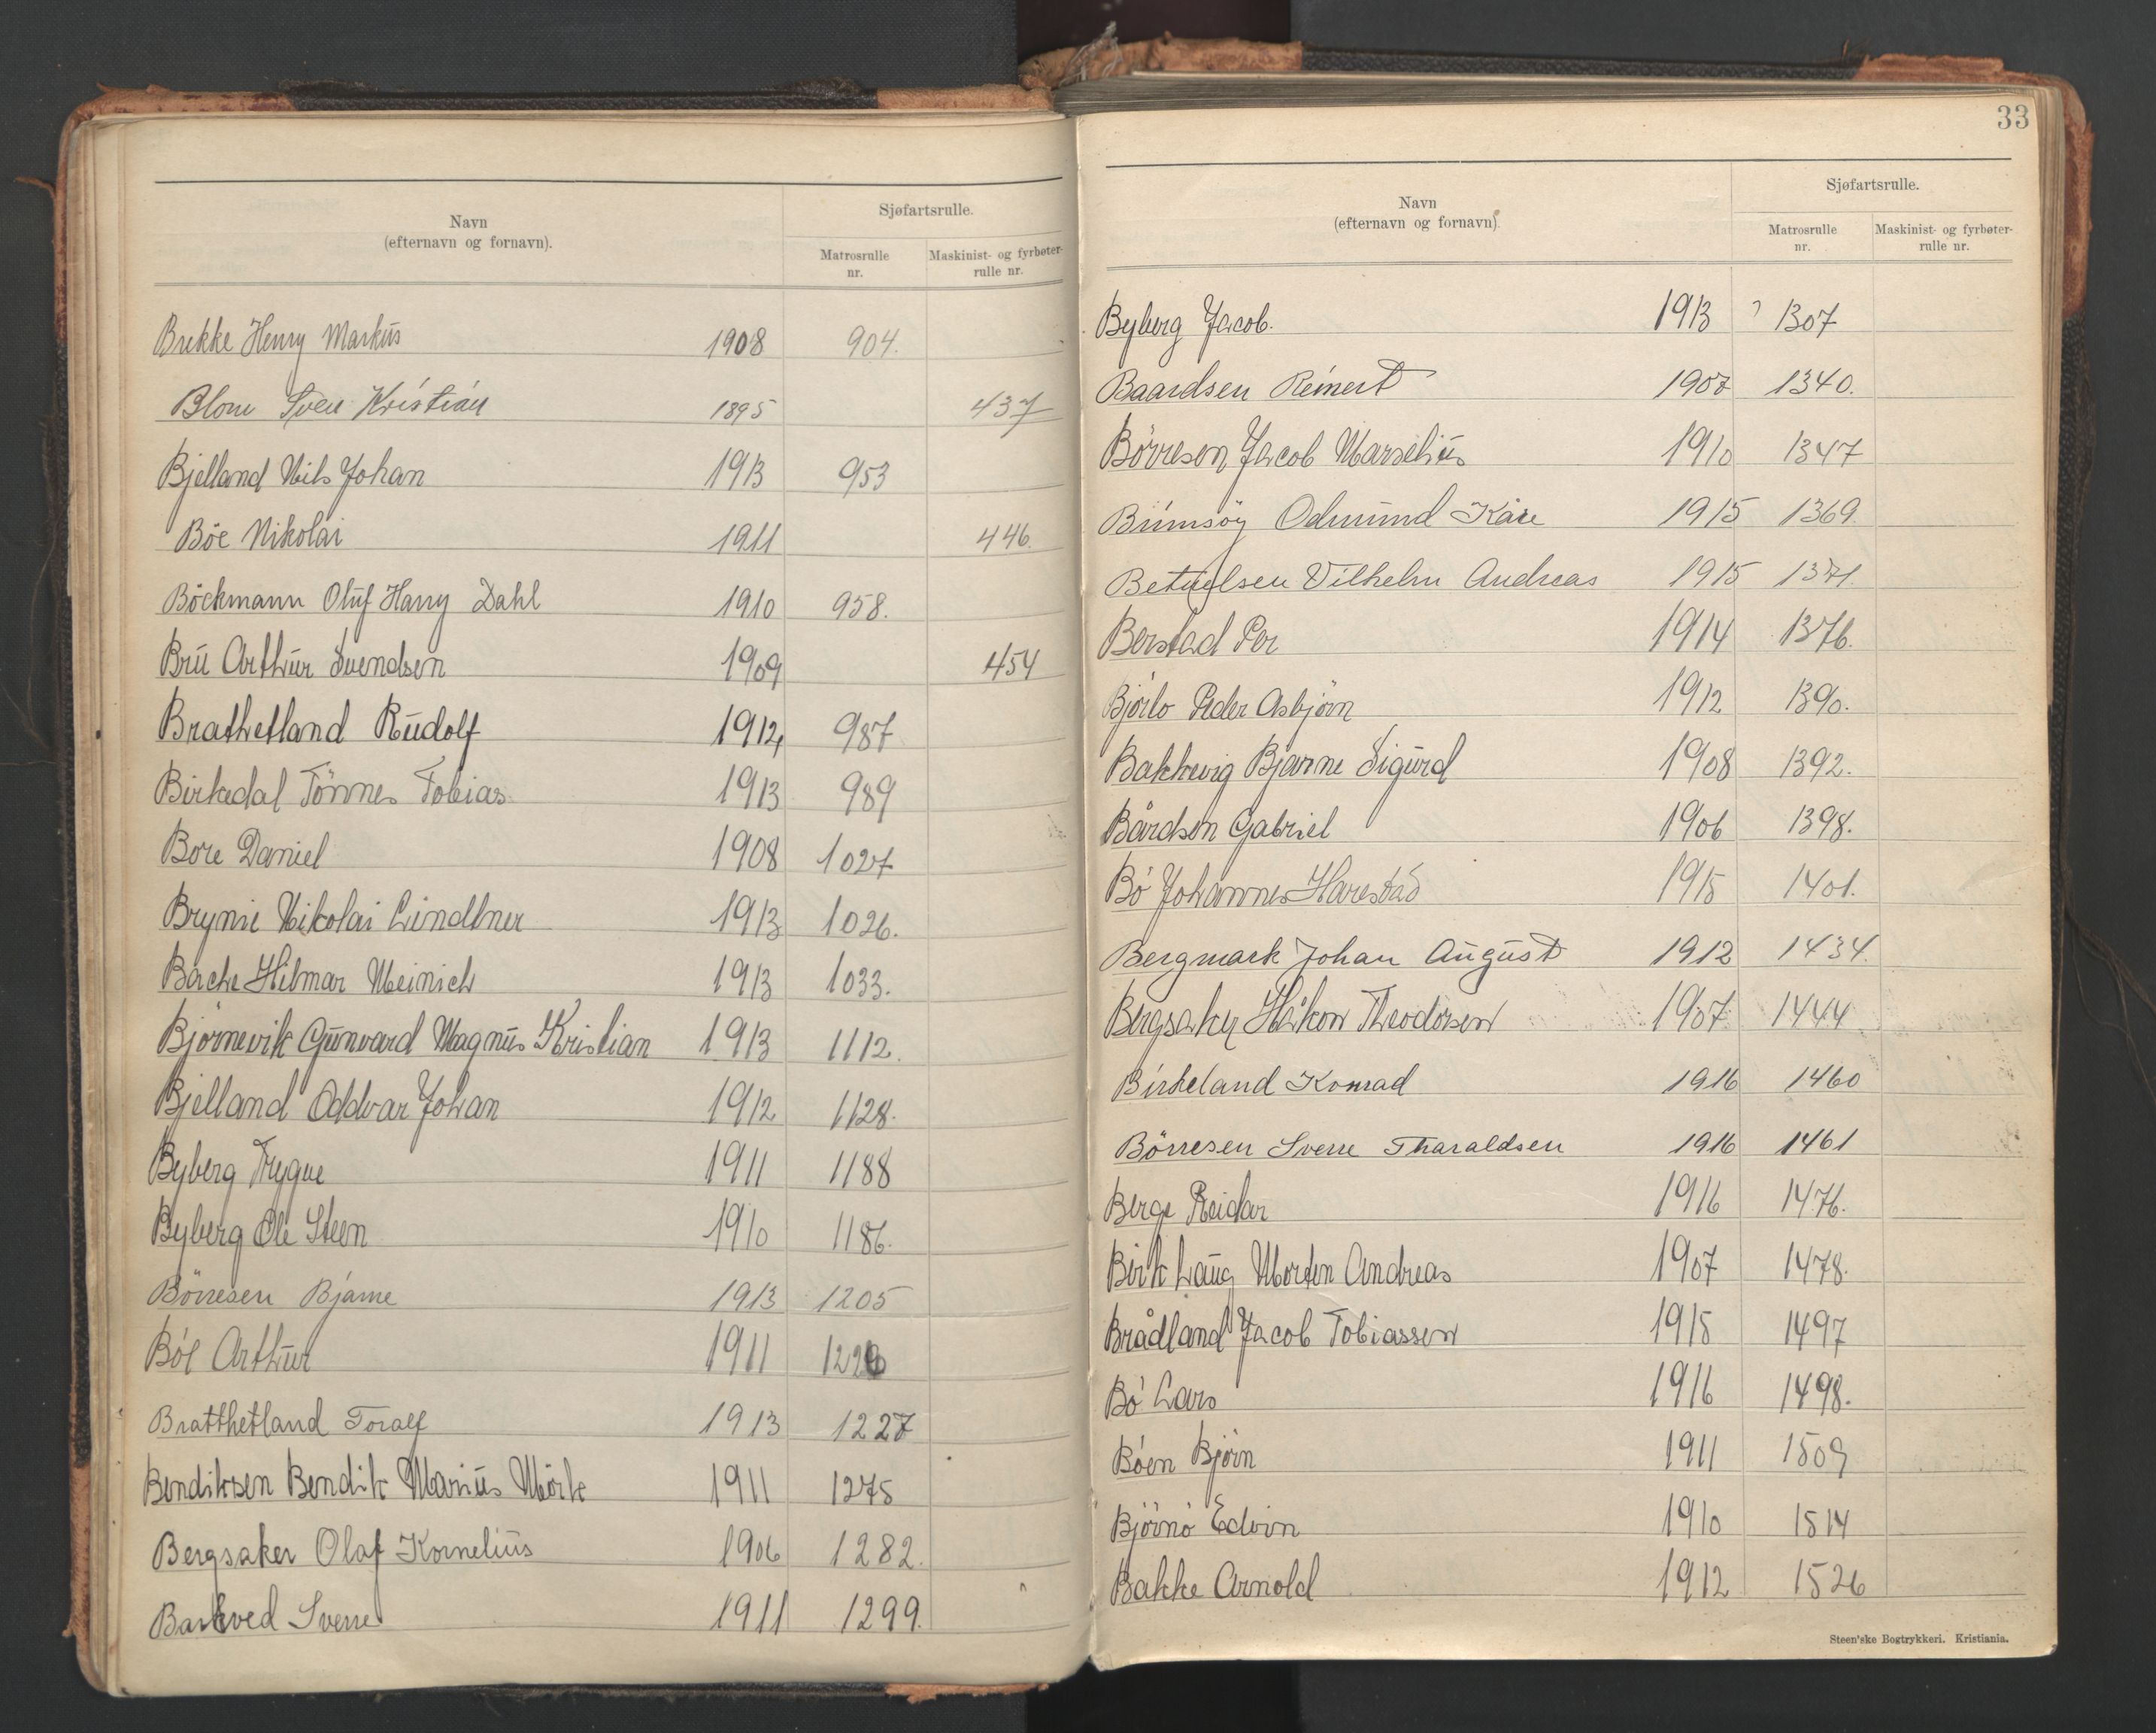 Navn
(efternavn og fornavn).
Sjøfartsrulle.
Matrosrulle
nr.
Maskinist- og fyrbøter-
rulle nr.
Brekke Henry Markus 1908 904.
Blom Sven Kristian 1895 437
Bjelland Nils Johan 1913 953
Böe Nikolai 1911 446.
Böckmann Oluf Harry Dahl 1910 958.
Bru Arthur Svendsen 1909 454
Brathetland Rudolf 1912 987
Birkedal Tönnes Tobias 1913 989
Bore Daniel 1908 1027
Brynie Nikolai 1913 1026.
Bache Hilmar Meinich 1913 1033.
Björnevik Gunvard Magnus Kristian 1913 1112.
Bjelland Oddvar Johan 1912 1128.
Byberg Trygve 1911 1188
Byberg Ole Steen 1910 1186.
Börresen Bjarne 1913 1205
Böe Arthur 1911
Bratthetland Toralf 1913 1227
Bendiksen Bendik Marius Mörk 1911 1275
Bergsaker Olaf Kornelius 1906 1282.
Barkved Sverre 1911 1299.
33
Navn
(efternavn og fornavn).
Sjøfartsrulle.
Matrosrulle
nr.
Maskinist- og fyrbøter-
rulle nr.
Byberg Jacob. 1913 1307
Baardsen Reinert 1907 1340.
Börresen Jacob Marselius 1910 1347
Brimsöy Odmund Kåre 1915 1369.
Betuelsen Vilhelm Andreas 1915 1371.
Berstad Per 1914 1376.
Bjórlo Peder Asbjörn 1912 1390.
Bakkevig Bjarne Sigurd 1908 1392.
Bårdsen Gabriel 1906 1398.
Bö Johannes Harestad 1915 1401.
Bergmark Johan August 1912 1434.
Bergsaker Håkon Theodorsen 1907 1444
Birkeland Konrad 1916 1460
Börresen Sverre Tharaldsen 1916 1461
Berge Reidar 1916 1476.
Birk Laug Morten Andreas 1907 1478.
Brådland Jacob Tobiassen 1915 1497
Bö Lars 1916 1498.
Böen Björn 1911 1509
Björnö Edvin 1910 1514
Bakke Arnold 1912 1526
Steen'ske Bogtrykkeri. Kristiania.